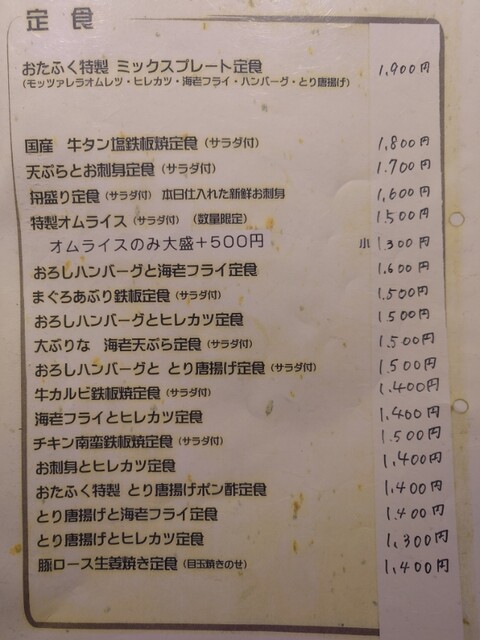 定食
おたふく特製 ミックスプレート定食 1,900円
(モッツァレラオムレツ・ヒレカツ・海老フライ・ハンバーグ・とり唐揚げ)
国産 牛タン塩鉄板焼定食(サラダ付) 1,800円
天ぷらとお刺身定食(サラダ付) 1,700円
舟盛り定食(サラダ付) 本日仕入れた新鮮お刺身 1,600円
特製オムライス(サラダ付) (数量限定) 1,500円
オムライスのみ大盛+500円 小 1,300円
おろしハンバーグと海老フライ定食 1,600円
まぐろあぶり鉄板定食(サラダ付) 1,500円
おろしハンバーグとヒレカツ定食 1,500円
大ぶりな 海老天ぷら定食(サラダ付) 1,500円
おろしハンバーグと とり唐揚げ定食(サラダ付) 1,500円
牛カルビ鉄板焼定食(サラダ付) 1,400円
海老フライとヒレカツ定食 1,400円
チキン南蛮鉄板焼定食(サラダ付) 1,500円
お刺身とヒレカツ定食 1,400円
おたふく特製 とり唐揚げポン酢定食 1,400円
とり唐揚げと海老フライ定食 1,400円
とり唐揚げとヒレカツ定食 1,300円
豚ロース生姜焼き定食(目玉焼きのせ) 1,400円